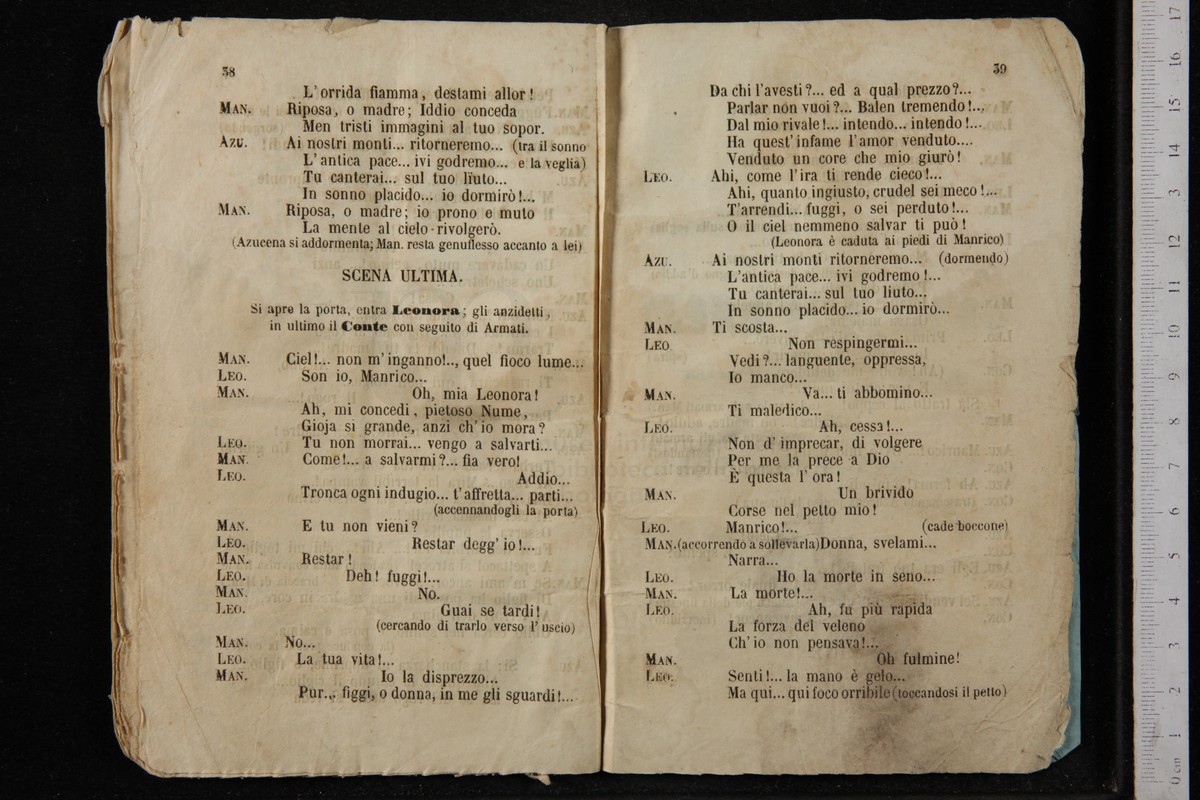 38
L'orrida fiamma, destami allor!
MAN. Riposa, o madre; Iddio conceda
Men tristi immagini al tuo sopor.
AZU. Ai nostri monti... ritorneremo... (tra il sonno
L'antica pace... ivi godremo... e la veglia)
Tu canterai... sul tuo liuto...
In sonno placido... io dormirò!...
MAN. Riposa, o madre; io prono e muto
La mente al cielo rivolgerò.
(Azucena si addormenta; Man. resta genuflesso accanto a lei)
SCENA ULTIMA.
Si apre la porta, entra Leonora; gli anzidetti,
in ultimo il Conte con seguito di Armati.
MAN. Ciel!... non m'inganno!.., quel fioco lume...
LEO. Son io, Manrico...
MAN. Oh, mia Leonora!
Ah, mi concedi, pietoso Nume,
Gioja sì grande, anzi ch'io mora?
LEO. Tu non morrai... vengo a salvarti...
MAN. Come!... a salvarmi?... fia vero!
LEO. Addio...
Tronca ogni indugio... t'affretta... parti...
(accennandogli la porta)
MAN. E tu non vieni?
LEO. Restar degg'io!...
MAN. Restar!
LEO. Deh! fuggi!...
MAN. No.
LEO. Guai se tardi!
(cercando di trarlo verso l'uscio)
MAN. No...
LEO. La tua vita!...
MAN. Io la disprezzo...
Pur... figgi, o donna, in me gli sguardi!...
39
Da chi l'avesti?... ed a qual prezzo?...
Parlar non vuoi?... Balen tremendo!...
Dal mio rivale!... intendo... intendo!...
Ha quest'infame l'amor venduto....
Venduto un core che mio giurò!
LEO. Ahi, come l'ira ti rende cieco!...
Ahi, quanto ingiusto, crudel sei meco!...
T'arrendi... fuggi, o sei perduto!...
O il ciel nemmeno salvar ti può!
(Leonora è caduta ai piedi di Manrico)
AZU. Ai nostri monti ritorneremo... (dormendo)
L'antica pace... ivi godremo!...
Tu canterai... sul tuo liuto...
In sonno placido... io dormirò...
MAN. Ti scosta...
LEO Non respingermi...
Vedi?... languente, oppressa,
Io manco...
MAN. Va... ti abbomino...
Ti maledico...
LEO. Ah, cessa!...
Non d'imprecar, di volgere
Per me la prece a Dio
È questa l'ora!
MAN. Un brivido
Corse nel petto mio!
LEO. Manrico!... (cade boccone)
MAN.(accorrendo a sollevarla)Donna, svelami...
Narra...
LEO. Ho la morte in seno...
MAN. La morte!...
LEO. Ah, fu più rapida
La forza del veleno
Ch'io non pensava!...
MAN. Oh fulmine!
LEO. Senti!... la mano è gelo...
Ma qui... qui foco orribile(toccandosi il petto)
0 cm 1 2 3 4 5 6 7 8 9 10 11 12 13 14 15 16 17